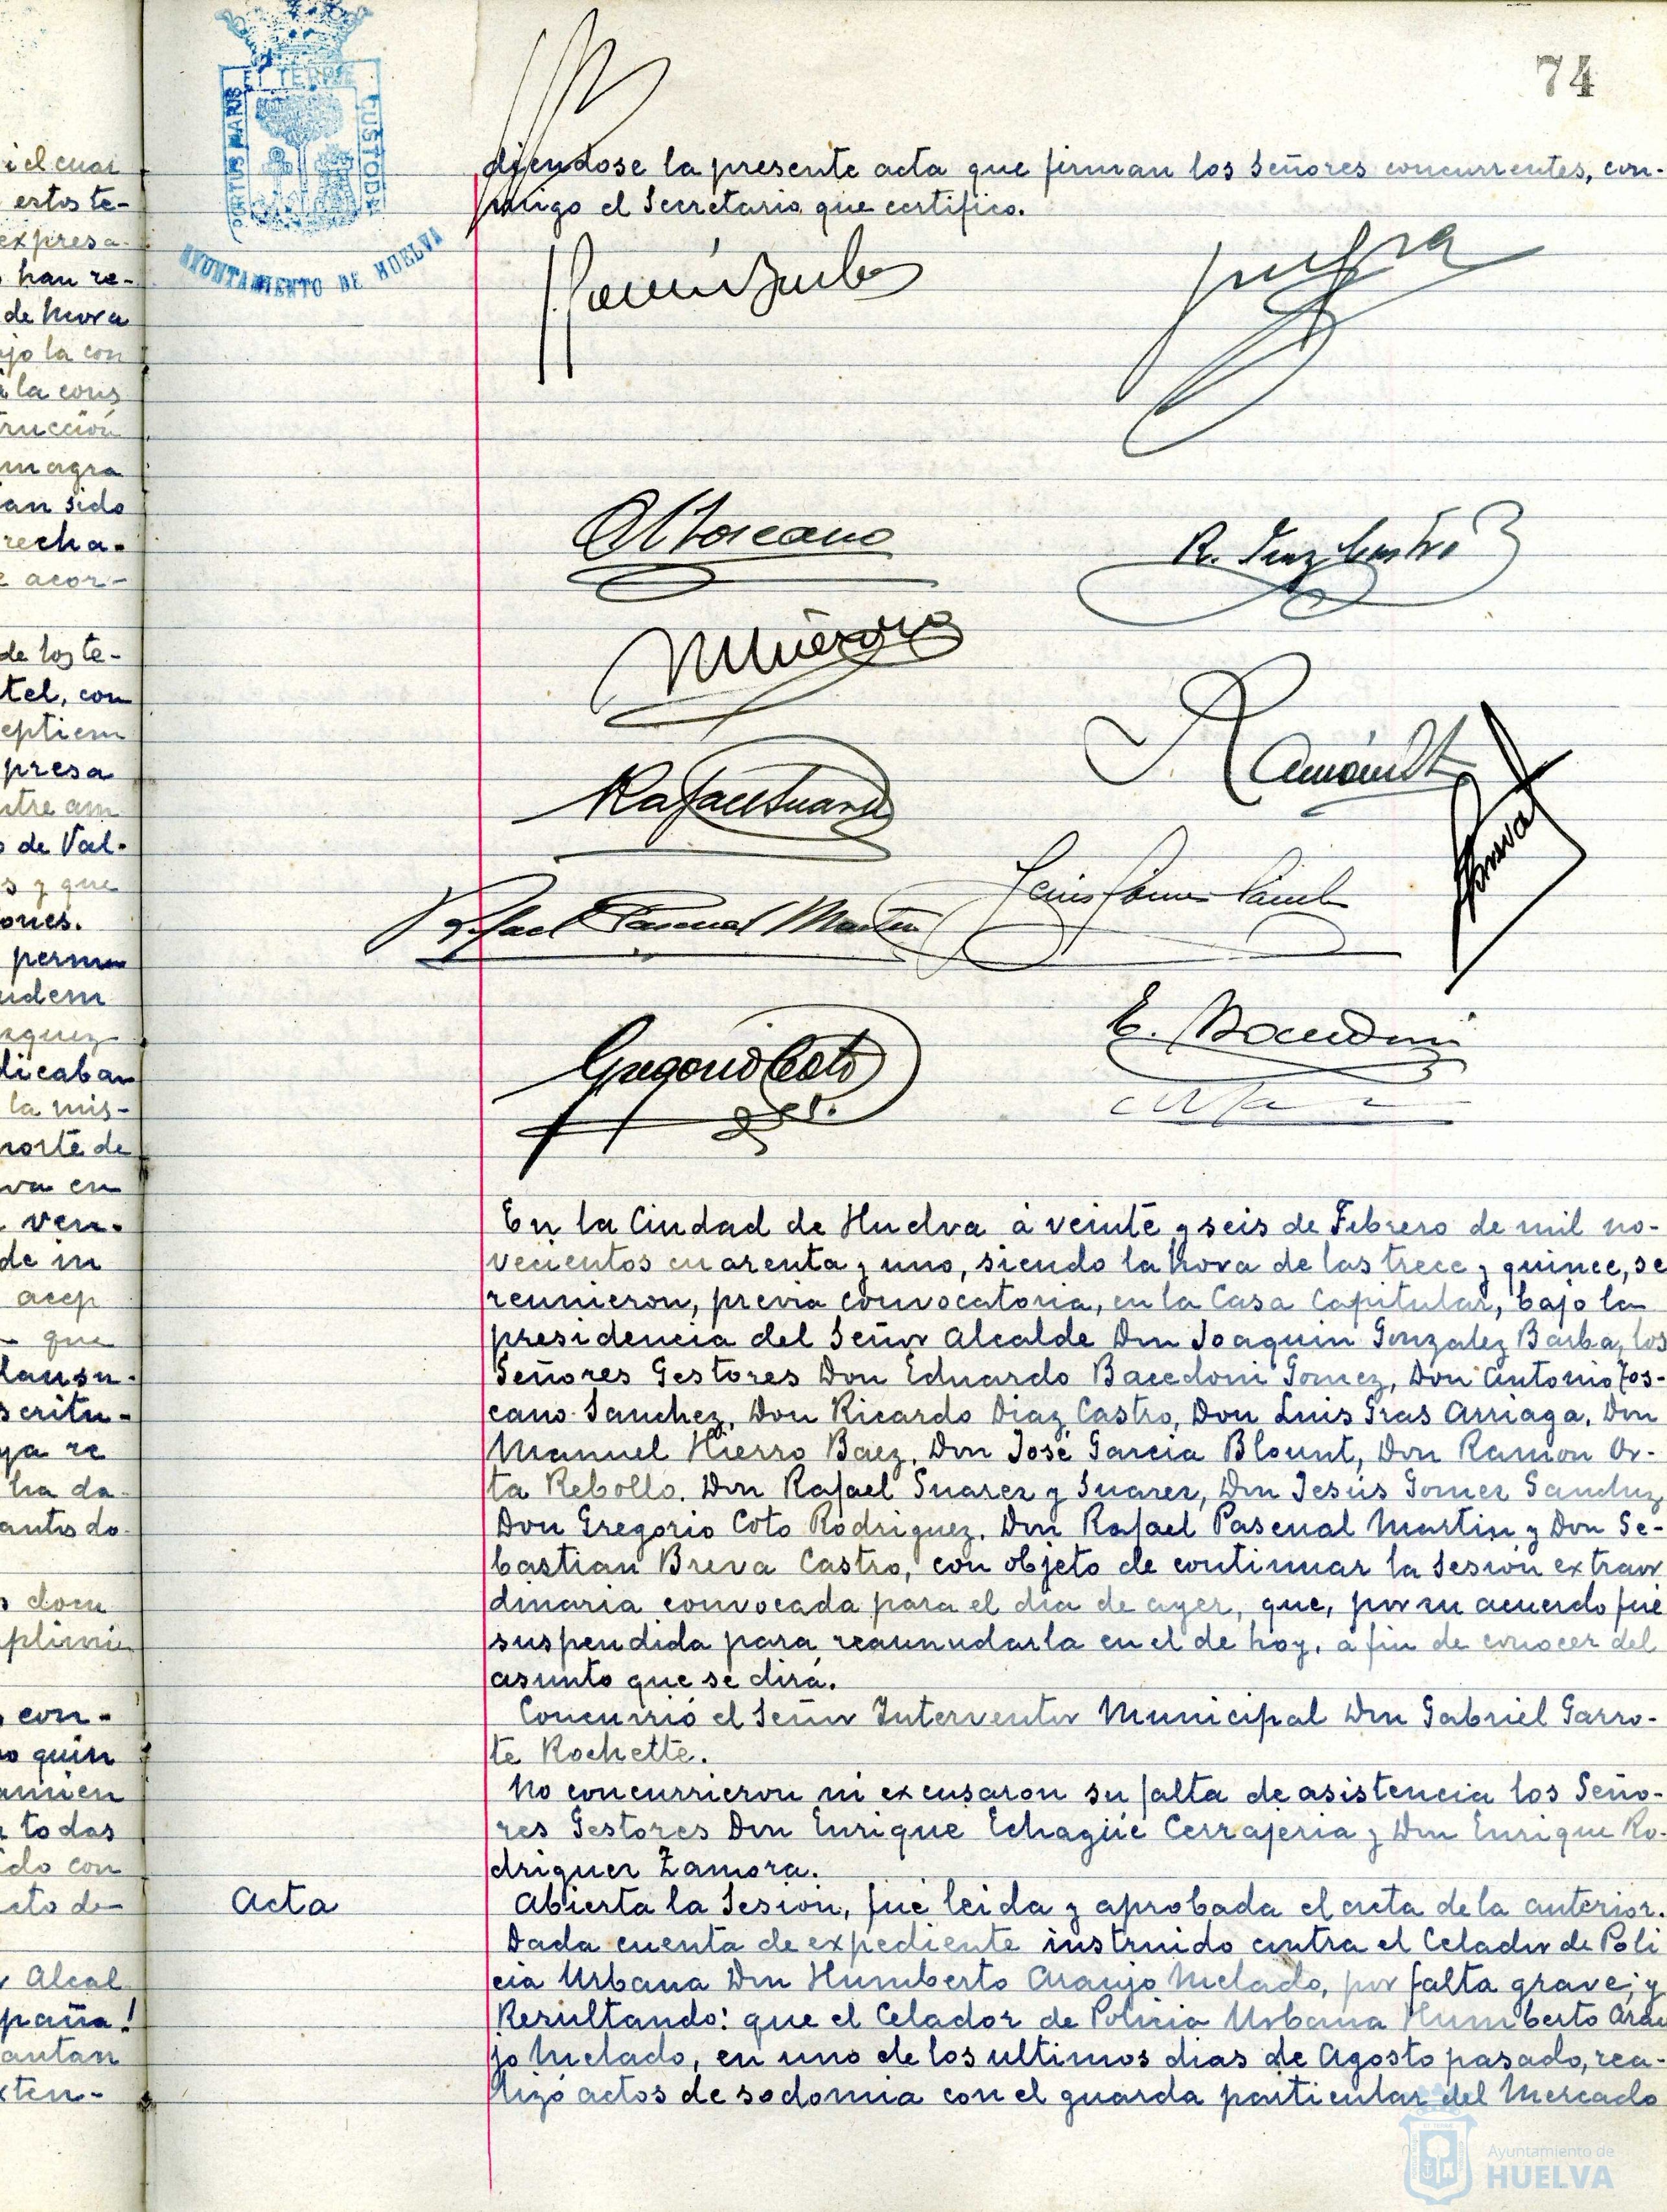 74
PORTUS MARIS
ET TERRE
CUSTODIA
AYUNTAMIENTO DE HUELVA
diendose la presente acta que firman los Señores concurrentes, con-
migo el Secretario, que certifico.
R. Diaz Castro
Rafael Suarez
Rafael Pascual Martin
Gregorio Coto
E. Bacedoni
En la Ciudad de Huelva á veinte y seis de Febrero de mil no-
vecientos cuarenta y uno, siendo la hora de las trece y quince, se
reunieron, previa convocatoria, en la Casa Capitular, bajo la
presidencia del Señor Alcalde Don Joaquin Gonzalez Barba, los
Señores Gestores Don Eduardo Bacedoni Gomez, Don Antonio Tos-
cano Sanchez, Don Ricardo Diaz Castro, Don Luis Gras Arriaga, Don
Manuel Hierro Baez, Don José Garcia Blount, Don Ramon Or-
ta Rebollo, Don Rafael Suarez y Suarez, Don Jesús Gomez Sanchez
Don Gregorio Coto Rodriguez, Don Rafael Pascual Martin y Don Se-
bastian Breva Castro, con objeto de continuar la Sesión extraor
dinaria convocada para el dia de ayer, que, por su acuerdo fué
suspendida para reanundarla en el de hoy, á fin de conocer del
asunto que se dirá.
Concurrió el Señor Interventor Municipal Don Gabriel Garro-
te Rochette.
No concurrieron ni excusaron su falta de asistencia los Seño-
res Gestores Don Enrique Echagüe Cerrajeria y Don Enrique Ro-
driguez Zamora.
Acta
Abierta la Sesión, fué leida y aprobada el acta de la anterior.
Dada cuenta de expediente instruido contra el Celador de Poli
cia Urbana Don Humberto Araujo Melado, por falta grave; y
Resultando: que el Celador de Policia Urbana Humberto Arau
jo Melado, en uno de los ultimos dias de Agosto pasado, rea-
lizó actos de sodomia con el guarda particular del Mercado
i el cual
estos te-
expresa-
han re-
de Mora
ajo la con
la cons
trucción
magra
an sido
recha-
acor-
de los te-
tel, con
eptiem
presa
ntre am
de Val-
s y que
ones.
permu
udem
zquez
dicaban
la mis-
norte de
va en
ven-
de in
acep
que
lausu-
scritu-
ya re
ha da-
antes do-
docu
plimie
con-
quin
amien
todas
ido con
eto de
Alcal
paña!
antan
xten-
Ayuntamiento de
HUELVA